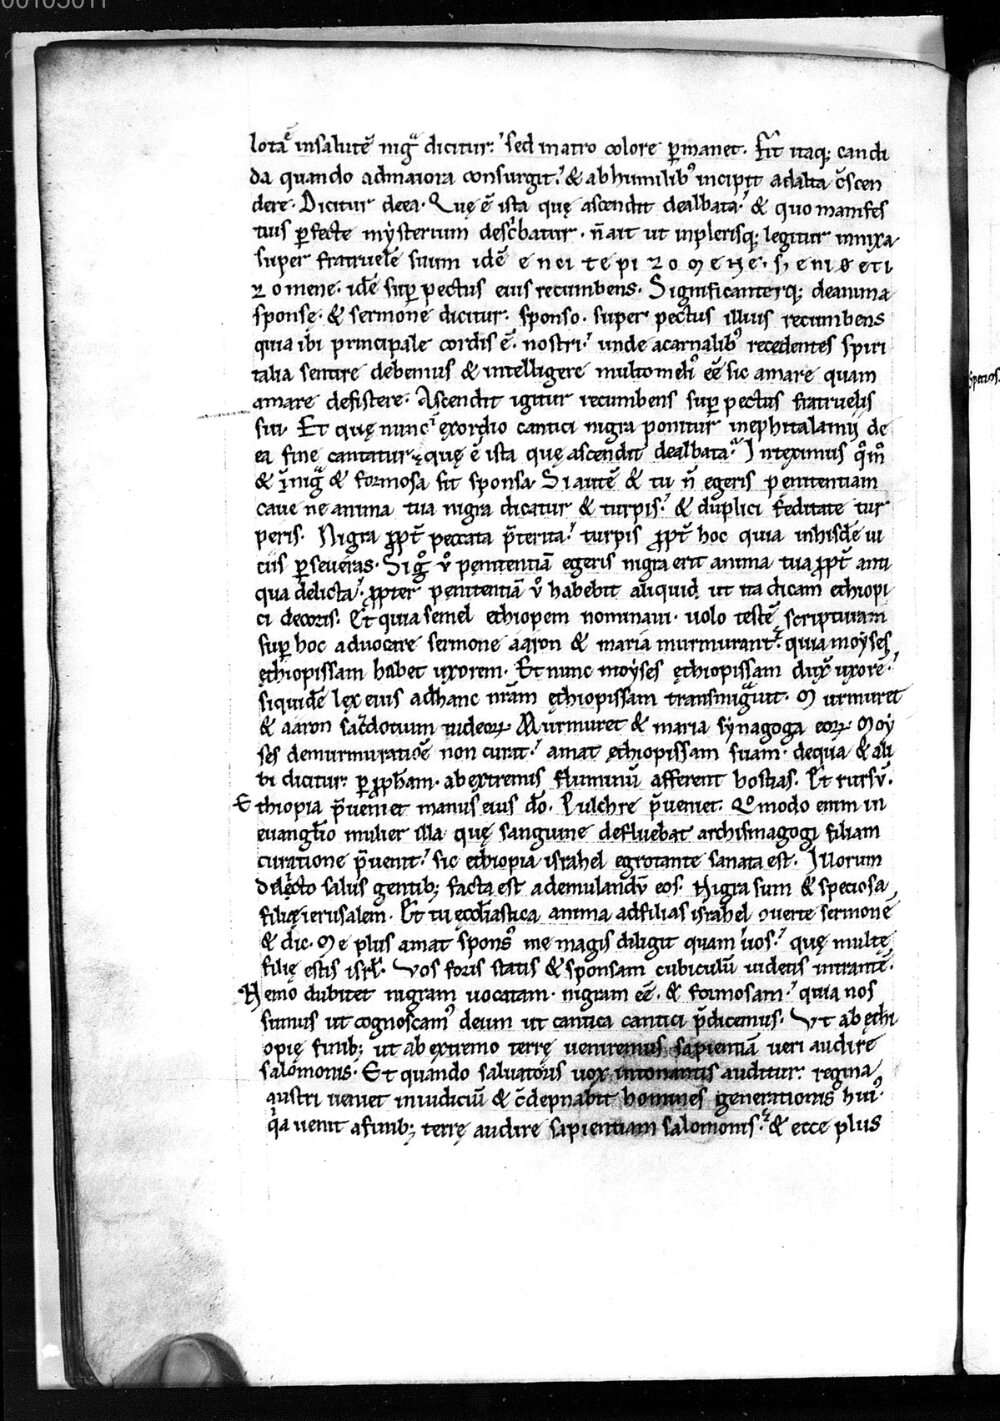 00105011
lotā insalutē nigͣ dicitur: sed in atro colore ꝑmanet. Fit itaq; candi
da quando admaiora consurgit. & ab humilibꝰ incipit adalta c̄scen
dere. Dicitur deea. Quę ē ista quę ascendit dealbata? & quo manifes
tius ꝑfecte mysterium descͥbatur. n̄ ait ut inplerisq; legitur innixa
super fratruelē suum idē e
romene. idē suꝑ pectus eius recumbens. Significanterq; deanima
sponse. & sermone dicitur. sponso. super pectus illius recumbens
quia ibi principale cordis ē. nostri. unde acarnalibꝰ recedentes spiri
talia sentire debemus & intelligere multo meliꝰ eē sic amare quam
amare desistere. Ascendit igitur recumbens suꝑ pectus fratruelis
sui. Et quę nunc exordio cantici nigra ponitur inephitalamii de
ea fine cantatur quę ē ista quę ascendit dealbata? Inteximus qͦm̄
& nigͣ & formosa sit sponsa. Si autē & tu n̄ egeris penitentiam
caue ne anima tua nigra dicatur & turpis. & duplici feditate tur
peris. Nigra ꝓpt̄ peccata p̄terita. turpis ꝓpt̄ hoc quia inhisdē ui
ciis ꝑseueras. Sig uͦ pęnitentiā egeris nigra erit anima tua ꝓpt̄ anti
qua delicta. ꝓpter penitentiā uͦ habebit aliquid ut ita dicam ethiopi
ci decoris. Et quia semel ethiopem nominaui. uolo testē scripturam
suꝑ hoc aduocare sermone aaron & maria murmurant. quia moyses
ęthiopissam habet uxorem. Et nunc moyses ęthiopissam dux̄ uxorē.
siquidē lex eius adhanc nr̄am ęthiopissam transmigͣuit. Murmuret
& aaron sac̄dotium iudeoꝝ. Murmuret & maria synagoga eoꝝ. Moy
ses demurmuratiōe non curat. amat ęthiopissam suam. dequa & ali
bi dicitur. ꝑ ꝓph̄am. abextremis fluminū afferent hostias. Et rursū.
Ethiopia p̄ueniet manus eius dō. Pulchre p̄ueniet. Qͦmodo enim in
euanglio mulier illa quę sanguine defluebat archisinagogi filiam
curatione p̄uenit. sic ethiopia israhel egrotante sanata est. Illorum
delicto salus gentib; facta est ademulandū eos. Nigra sum & speciosa
filię ierusalem. Et tu ęccl̄iastica anima adfilias israhel ↄuerte sermonē
& dic. Me plus amat sponsꝰ me magis diligit quam uos. quę multę
filię estis isrl̄. Vos foris statis & sponsam cubiculū uidetis intrantē.
Nemo dubitet nigram uocatam. nigram eē. & formosam. quia nos
sumus ut cognoscamꝰ deum ut cantica cantici p̄dicemus. Vt ab ęthi
opię finib; ut ab extremo terrę ueniremus sapientiā ueri audire
salomonis. Et quando saluatoris uox intonantis auditur. regina
austri ueniet iniudiciū & c̄dēpnabit homines generationis huiꝰ.
qͥa uenit afinib; terrę audire sapientiam salomonis. & ecce plus